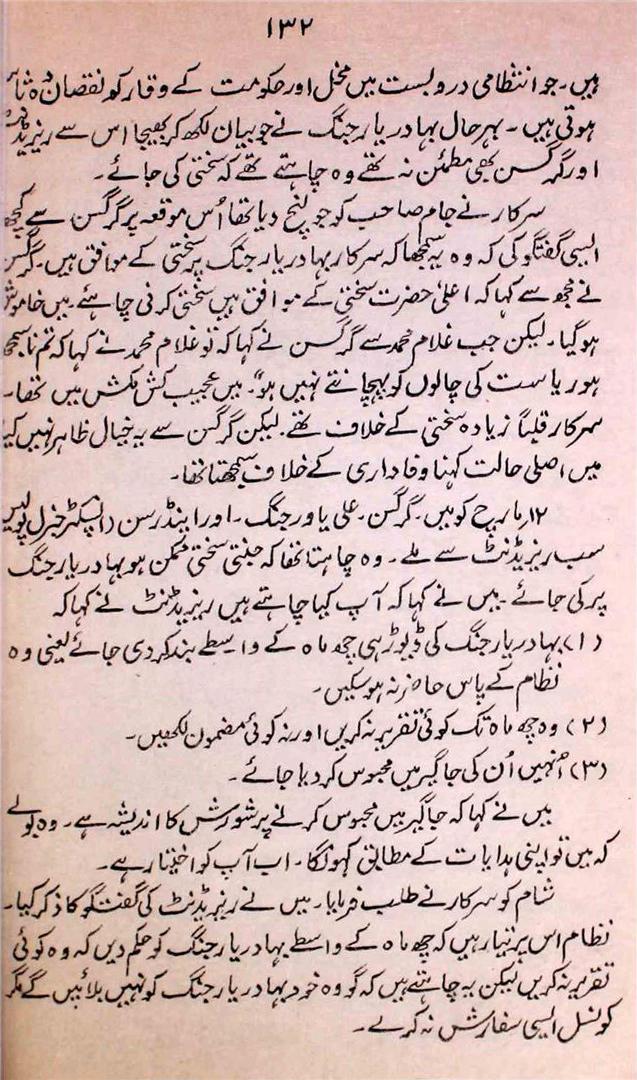 ۱۳۲
ہیں۔ جو انتظامی دروبست میں مخل اور حکومت کے وقار کو نقصان دہ ثا
ہوتی ہیں۔ بہر حال بہادر یار جنگ نے جو بیان لکھ کر بھیجا اس سے ریزیڈنٹ
اور گرگسن بھی مطمئن نہ تھے وہ چاہتے تھے کہ سختی کی جائے۔
سرکار نے جام صاحب کو جو لنچ دیا تھا اُس موقعہ پر گرگسن سے کچھ
ایسی گفتگو کی کہ وہ یہ سمجھا کہ سرکار بہادر یار جنگ پر سختی کے موافق ہیں۔ گرگسن
نے مجھ سے کہا کہ اعلیٰ حضرت سختی کے موافق ہیں سختی کرنی چاہئے۔ میں خاموش
ہوگیا۔ لیکن جب غلام محمد سے گرگسن نے کہا کہ تو غلام محمد نے کہا کہ تم ناسمجھ
ہو ریاست کی چالوں کو پہچانتے نہیں ہو"۔ میں عجیب کش مکش میں تھا۔
سرکار قلباً زیادہ سختی کے خلاف تھے۔ لیکن گرگسن سے یہ خیال ظاہر نہیں کیا
میں اصلی حالت کہنا وفاداری کے خلاف سمجھتا تھا۔
۱۲ مارچ کو میں۔ گرگسن۔ علی یاور جنگ۔ اور اینڈرسن (انسپکٹر جنرل پولیس
سب ریزیڈنٹ سے ملے۔ وہ چاہتا تھا کہ جتنی سختی ممکن ہو بہادر یار جنگ
پر کی جائے۔ میں نے کہا کہ آپ کیا چاہتے ہیں ریزیڈنٹ نے کہا کہ
(۱) بہادر یار جنگ کی ڈیوڑہی چھ ماہ کے واسطے بند کر دی جائے یعنی وہ
نظام کے پاس حاضر نہ ہوسکیں۔
(۲) وہ چھ ماہ تک کوئی تقریر نہ کریں اور نہ کوئی مضمون لکھیں۔
(۳) اُنہیں اُن کی جاگیر میں محبوس کر دیا جائے۔
میں نے کہا کہ جاگیر میں محبوس کرنے پر شورش کا اندیشہ ہے۔ وہ بولے
کہ میں تو اپنی ہدایات کے مطابق کہونگا۔ اب آپ کو اختیار ہے۔
شام کو سرکار نے طلب فرمایا۔ میں نے ریزیڈنٹ کی گفتگو کا ذکر کیا۔
نظام اس پر تیار ہیں کہ چھ ماہ کے واسطے بہادر یار جنگ کو حکم دیں کہ وہ کوئی
تقریر نہ کریں لیکن یہ چاہتے ہیں کہ گو وہ خود بہادر یار جنگ کو نہیں بلائیں گے مگر
کونسل ایسی سفارش نہ کرے۔